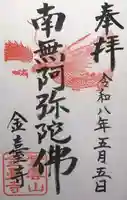 奉拝
令和八年五月五日
南無阿弥陀佛
金臺寺